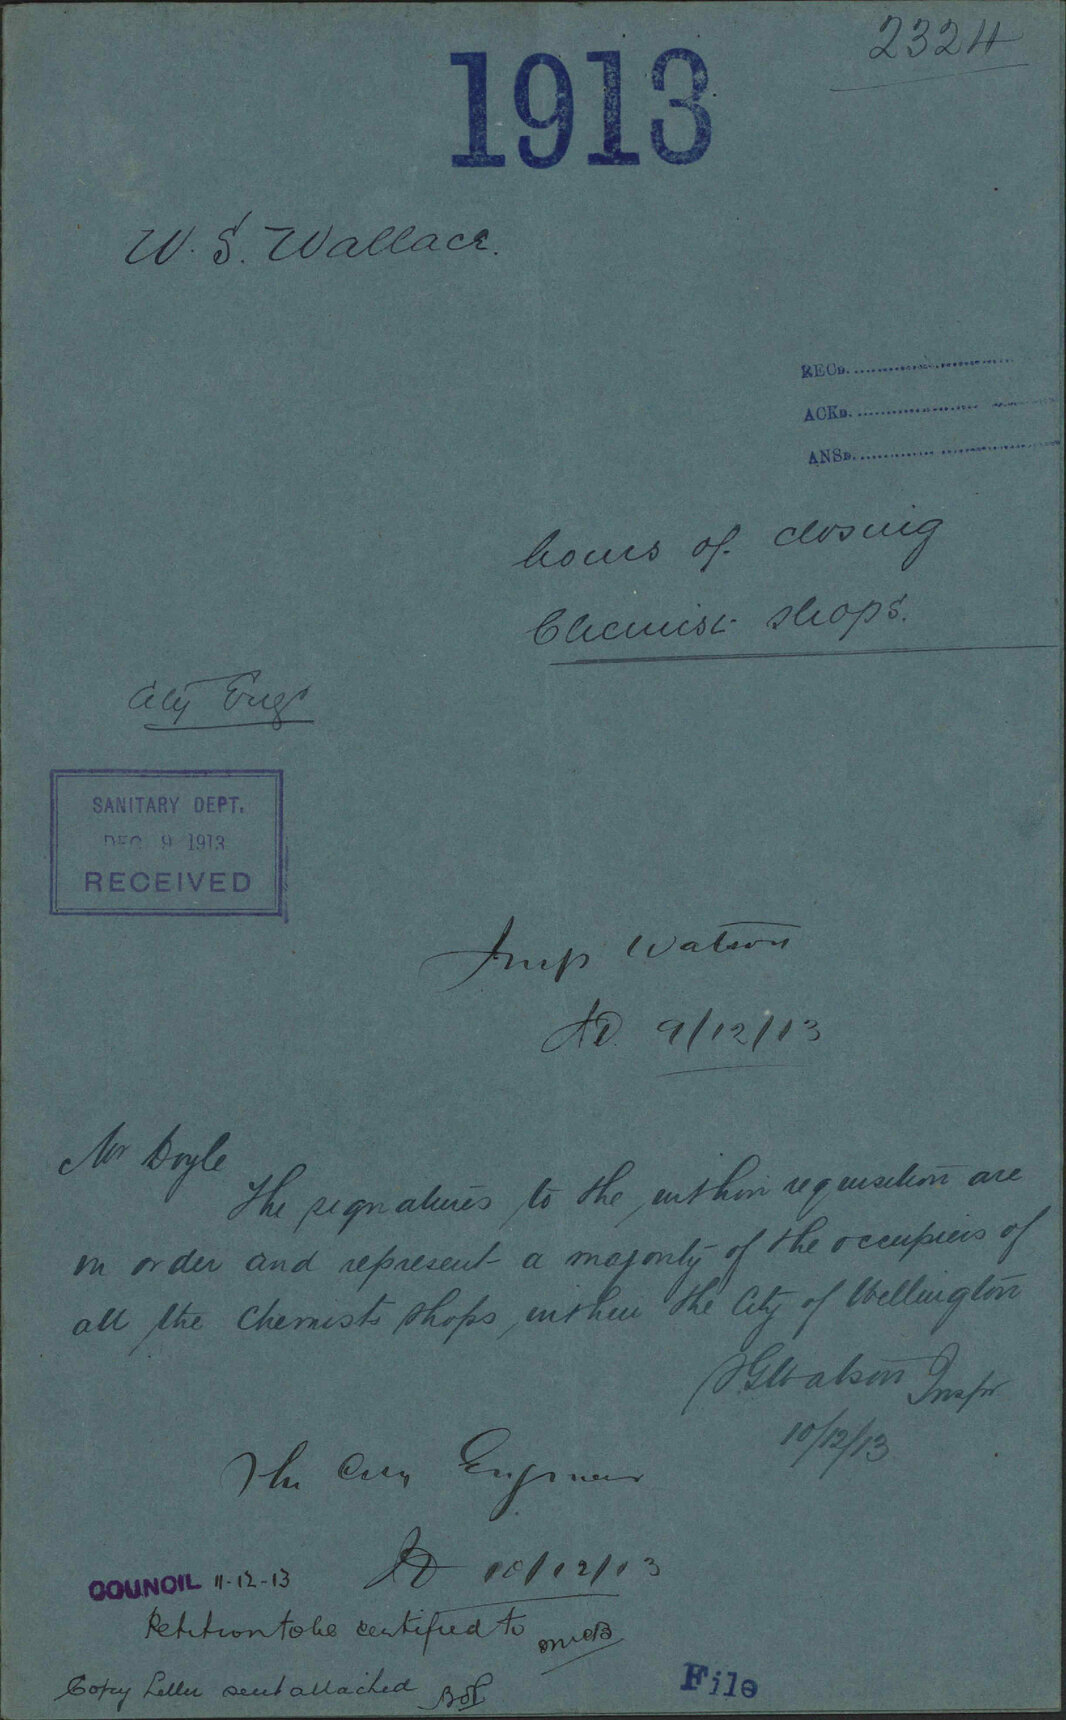 2324
1913
W. S. Wallace.
RECD.
ACKD.
ANSD.
hours of closing
Chemist shops.
City Engr
SANITARY DEPT.
DEC 9 1913
RECEIVED
Insp Watson
9/12/13
Mr Doyle
The signatures to the within requisition are
in order and represent a majority of the occupiers of
all the Chemists shops within the City of Wellington
Watson Inspr
10/12/13
The City Engineer
10/12/13
COUNCIL 11-12-13
Petition to be certified to
Copy Letter sent attached
File